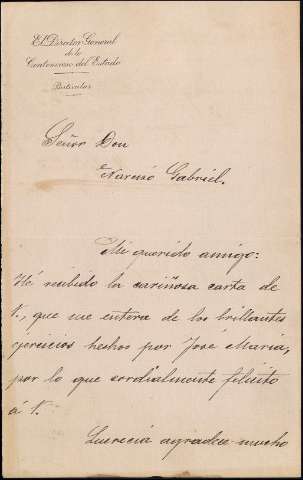 El Director General
de lo
Contencioso del Estado
Particular
Señor Don
Narciso Gabriel.
Mi querido amigo:
Hé recibido la cariñosa carta de
V., que me entera de los brillantes
ejercicios hechos por José María,
por lo que cordialmente felicito
á V.
Lucrecia agradece mucho